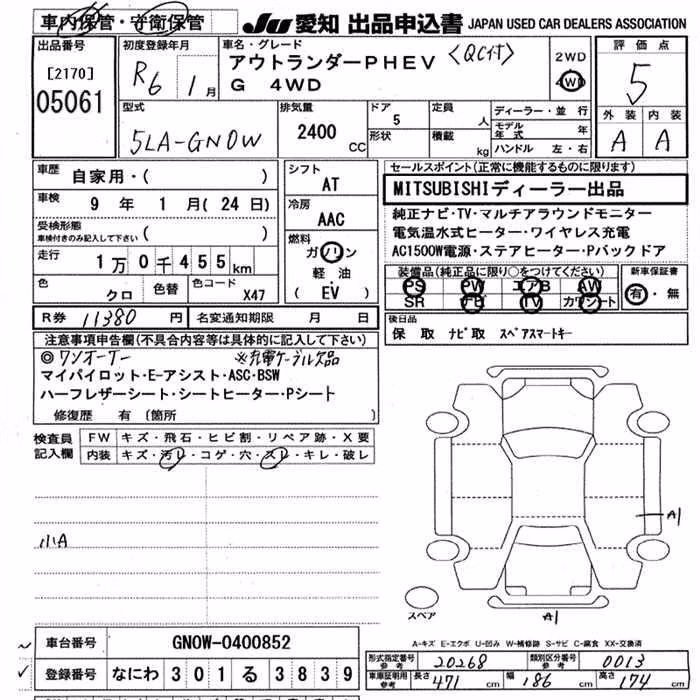 車内保管・守衛保管
JU 愛知 出品申込書 JAPAN USED CAR DEALERS ASSOCIATION
出品番号
[2170]
05061
初度登録年月
R6 1月
車名・グレード
アウトランダーPHEV 〈QC付〉
G 4WD
2WD
4WD
評価点
5
外装 内装
A A
型式
5LA-GN0W
排気量
2400 CC
ドア
5
形状
定員
人
積載
kg
ディーラー・並行
モデル年式 年
ハンドル 左・右
車歴
自家用・( )
車検
9 年 1 月(24日)
受検形態
車検付きのみ記入して下さい ( )
走行
1万0千455km
色
クロ
色替
色コード
X47
シフト
AT
冷房
AAC
燃料
ガソリン
軽油
( EV )
セールスポイント(正常に機能するものに限ります)
MITSUBISHIディーラー出品
純正ナビ・TV・マルチアラウンドモニター
電気温水式ヒーター・ワイヤレス充電
AC1500W電源・ステアヒーター・Pバックドア
装備品(純正品に限り○をつけてください)
PS PW エアB AW
SR ナビ TV カワシート
新車保証書
有・無
R券 11380 円 名変通知期限 月 日
後日品
保 取 ナビ取 スペアスマートキー
注意事項申告欄(不具合内容等は具体的に記入して下さい)
◎ワンオーナー ※充電ケーブル欠品
マイパイロット・E-アシスト・ASC・BSW
ハーフレザーシート・シートヒーター・Pシート
修復歴 有 〔箇所 〕
検査員記入欄
FW キズ・飛石・ヒビ割・リペア跡・X要
内装 キズ・汚レ・コゲ・穴・スレ・キレ・破レ
小A
A1
A1
スペア
A-キズ E-エクボ U-凹み W-補修跡 S-サビ C-腐食 XX-交換済
車台番号 GN0W-0400852
登録番号 なにわ 301 る 3839
形式指定番号 参考 20268 類別区分番号 参考 0013
車庫証明用 参考 長さ 471 cm 幅 186 cm 高さ 174 cm